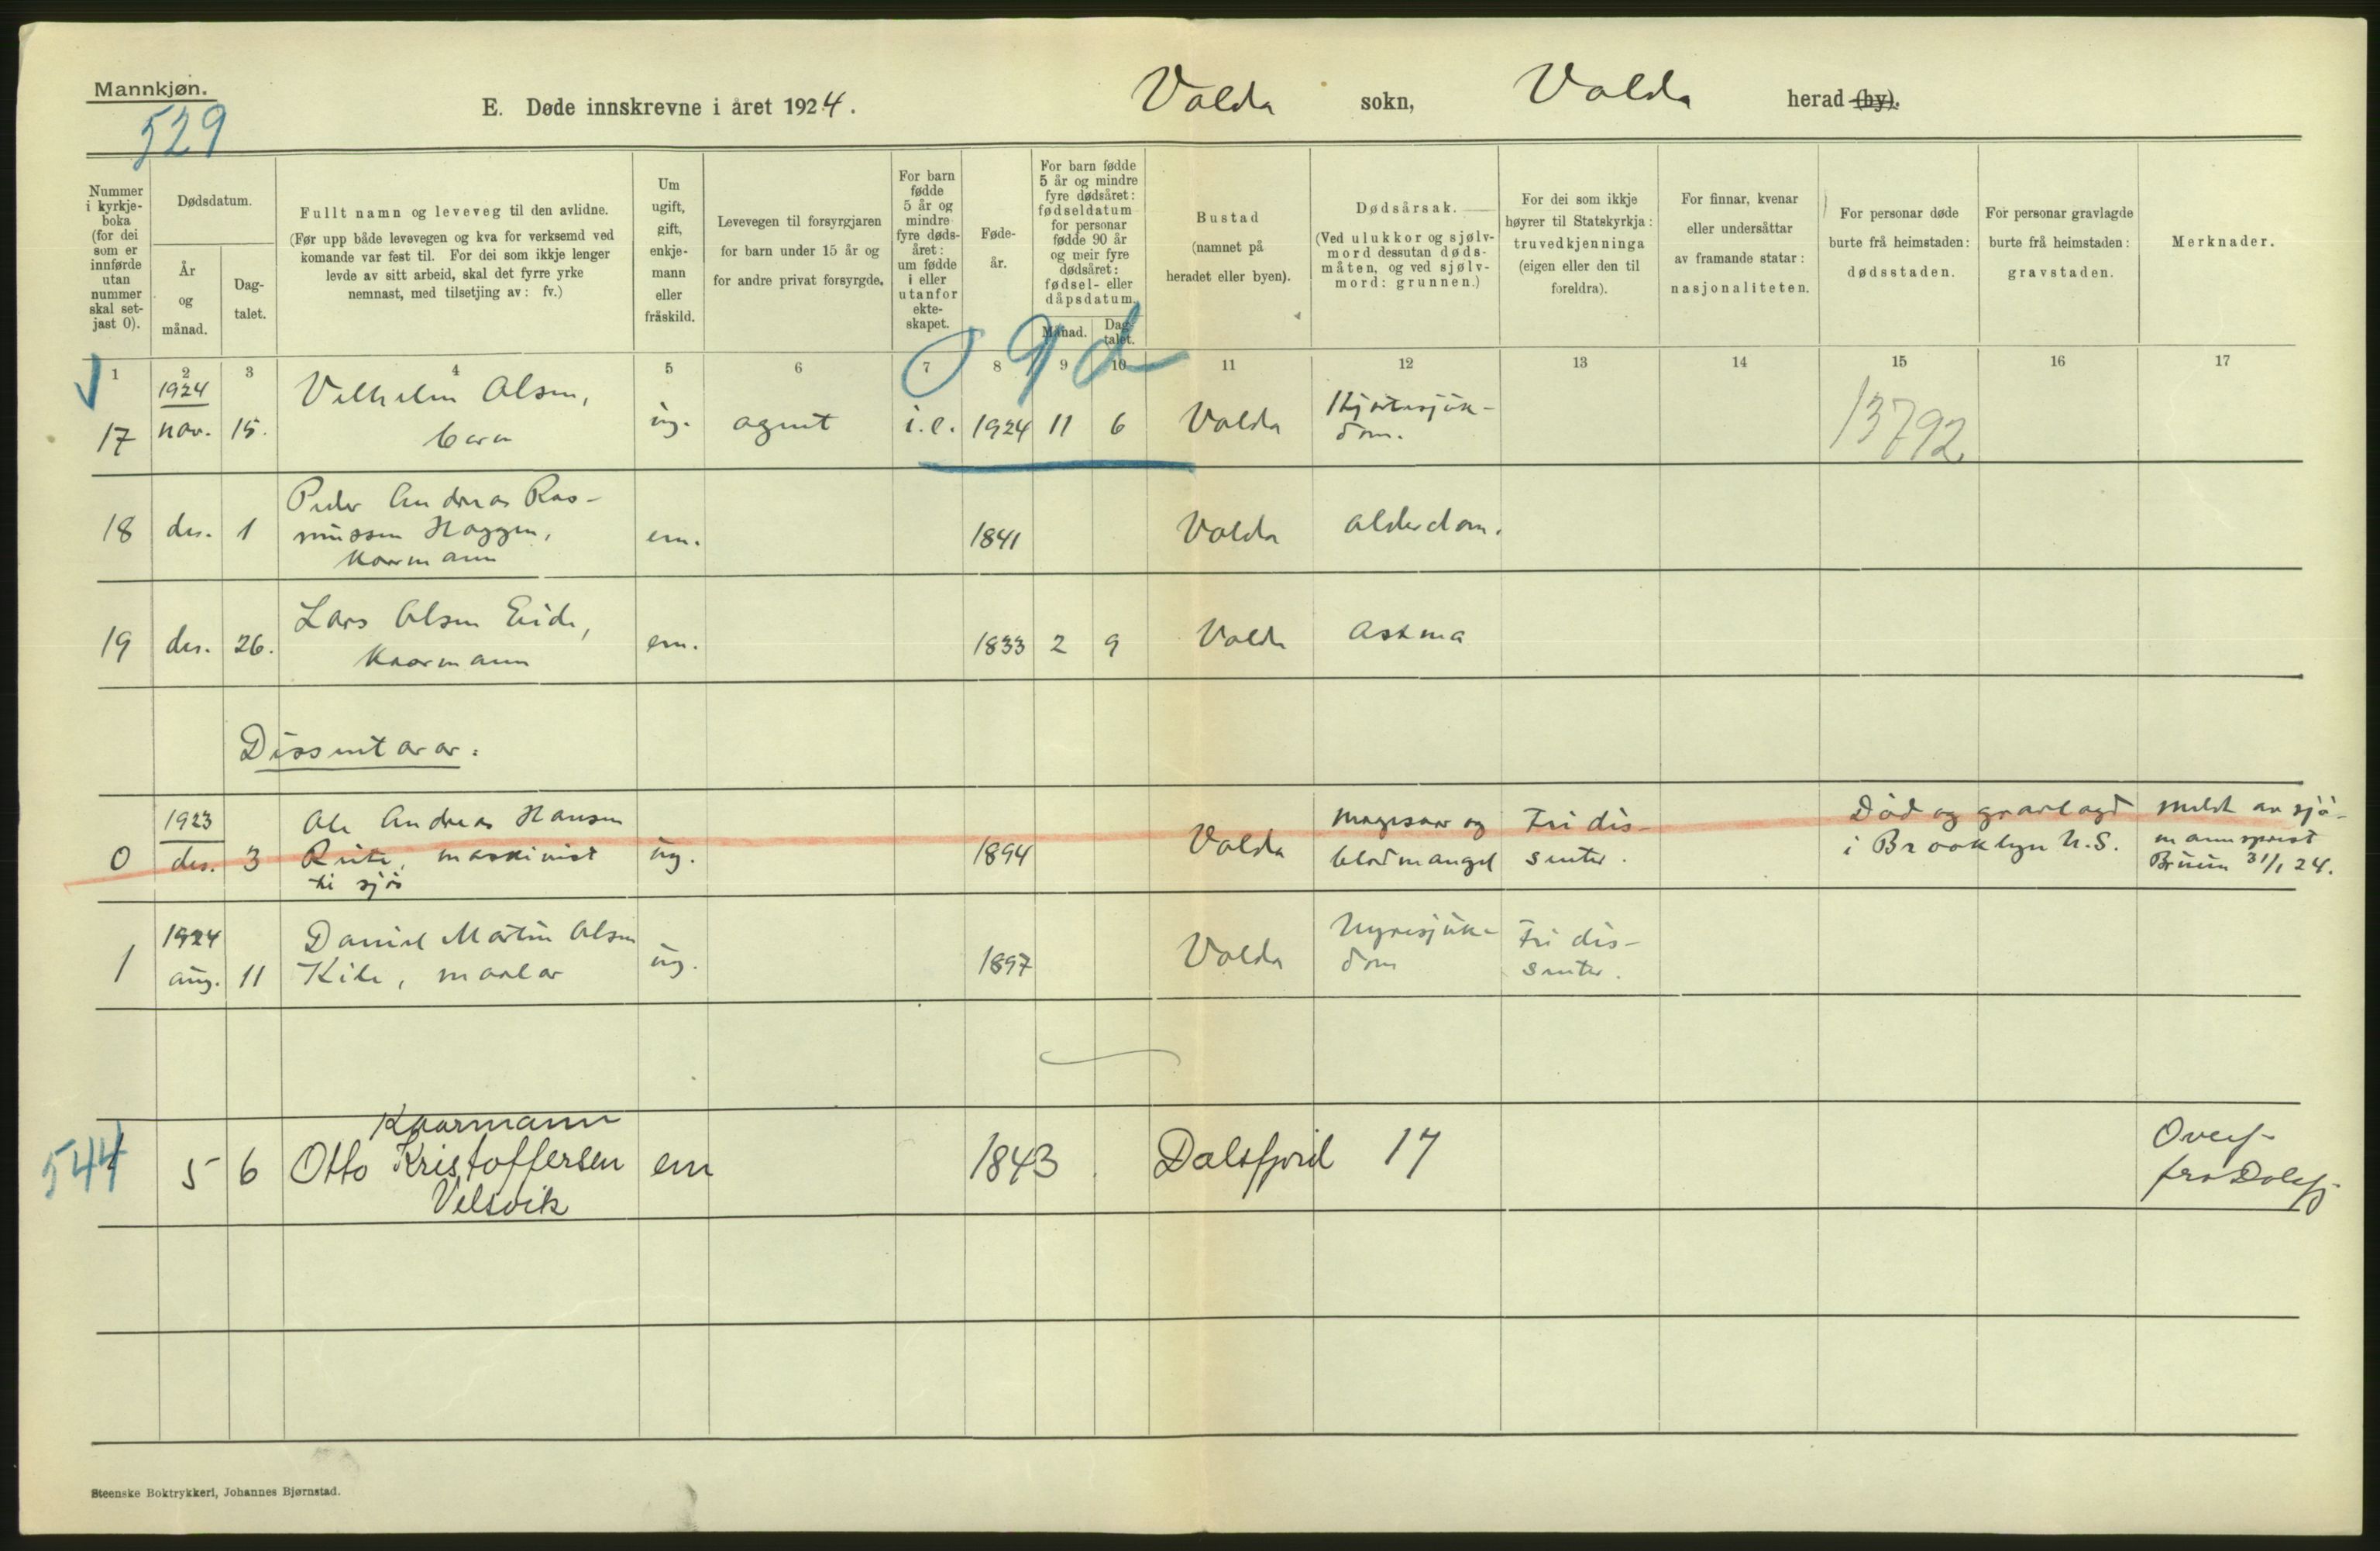 Mannkjøn.
529
E. Døde innskrevne i året 1924.
Volda sokn, Volda herad (by).
Nummer i kyrkje-boka (for dei som er innførde utan nummer skal set-jast 0).
Dødsdatum.
År og månad.
Dag-talet.
Fullt namn og leveveg til den avlidne.
(Før upp både levevegen og kva for verksemd ved komande var fest til. For dei som ikkje lenger levde av sitt arbeid, skal det fyrre yrke nemnast, med tilsetjing av: fv.)
Um ugift, gift, enkje-mann eller fråskild.
Levevegen til forsyrgjaren for barn under 15 år og for andre privat forsyrgde.
For barn fødde 5 år og mindre fyre døds-året: um fødde i eller utanfor ekte-skapet.
Føde-år.
For barn fødde 5 år og mindre fyre dødsåret: fødseldatum for personar fødde 90 år og meir fyre dødsåret: fødsel- eller dåpsdatum.
Månad.
Dag talet.
Bustad (namnet på heradet eller byen).
Dødsårsak.
(Ved ulukkor og sjølv-mord dessutan døds-måten, og ved sjølv-mord: grunnen.)
For dei som ikkje høyrer til Statskyrkja: truvedkjenninga (eigen eller den til foreldra).
For finnar, kvenar eller undersåttar av framande statar: nasjonaliteten.
For personar døde burte frå heimstaden: dødsstaden.
For personar gravlagde burte frå heimstaden: gravstaden.
Merknader.
1 2 3 4 5 6 7 8 9 10 11 12 13 14 15 16 17
0 9 d
17 1924 nov. 15. Vilhelm Olsen, barn ug. agent i.e. 1924 11 6 Volda Hjartesjuk-dom. 13792
18 des. 1 Peder Andreas Ras-mussen Haggen, Kaarmann em. 1841 Volda alderdom.
19 des. 26. Lars Olsen Eide, Kaarmann em. 1833 2 9 Volda Astma
Dissentarar:
0 1923 des. 3 Ole Andreas Hansen Rute, maskinist til sjøs ug. 1894 Volda Magesaar og blodmangel Fri dis-senter. Død og gravlagd i Brooklyn U.S. Meldt av sjø-mannsprest Bruun 31/1 24.
1 1924 aug. 11 Daniel Martin Olsen Kile, maalar ug. 1897 Volda Nyresjuk-dom Fri dis-senter.
544 5 6 Kaarmann Otto Kristoffersen Velsvik em 1843 Dalsfjord 17 Overf. fra Dalsfj.
Steenske Boktrykkeri, Johannes Bjørnstad.